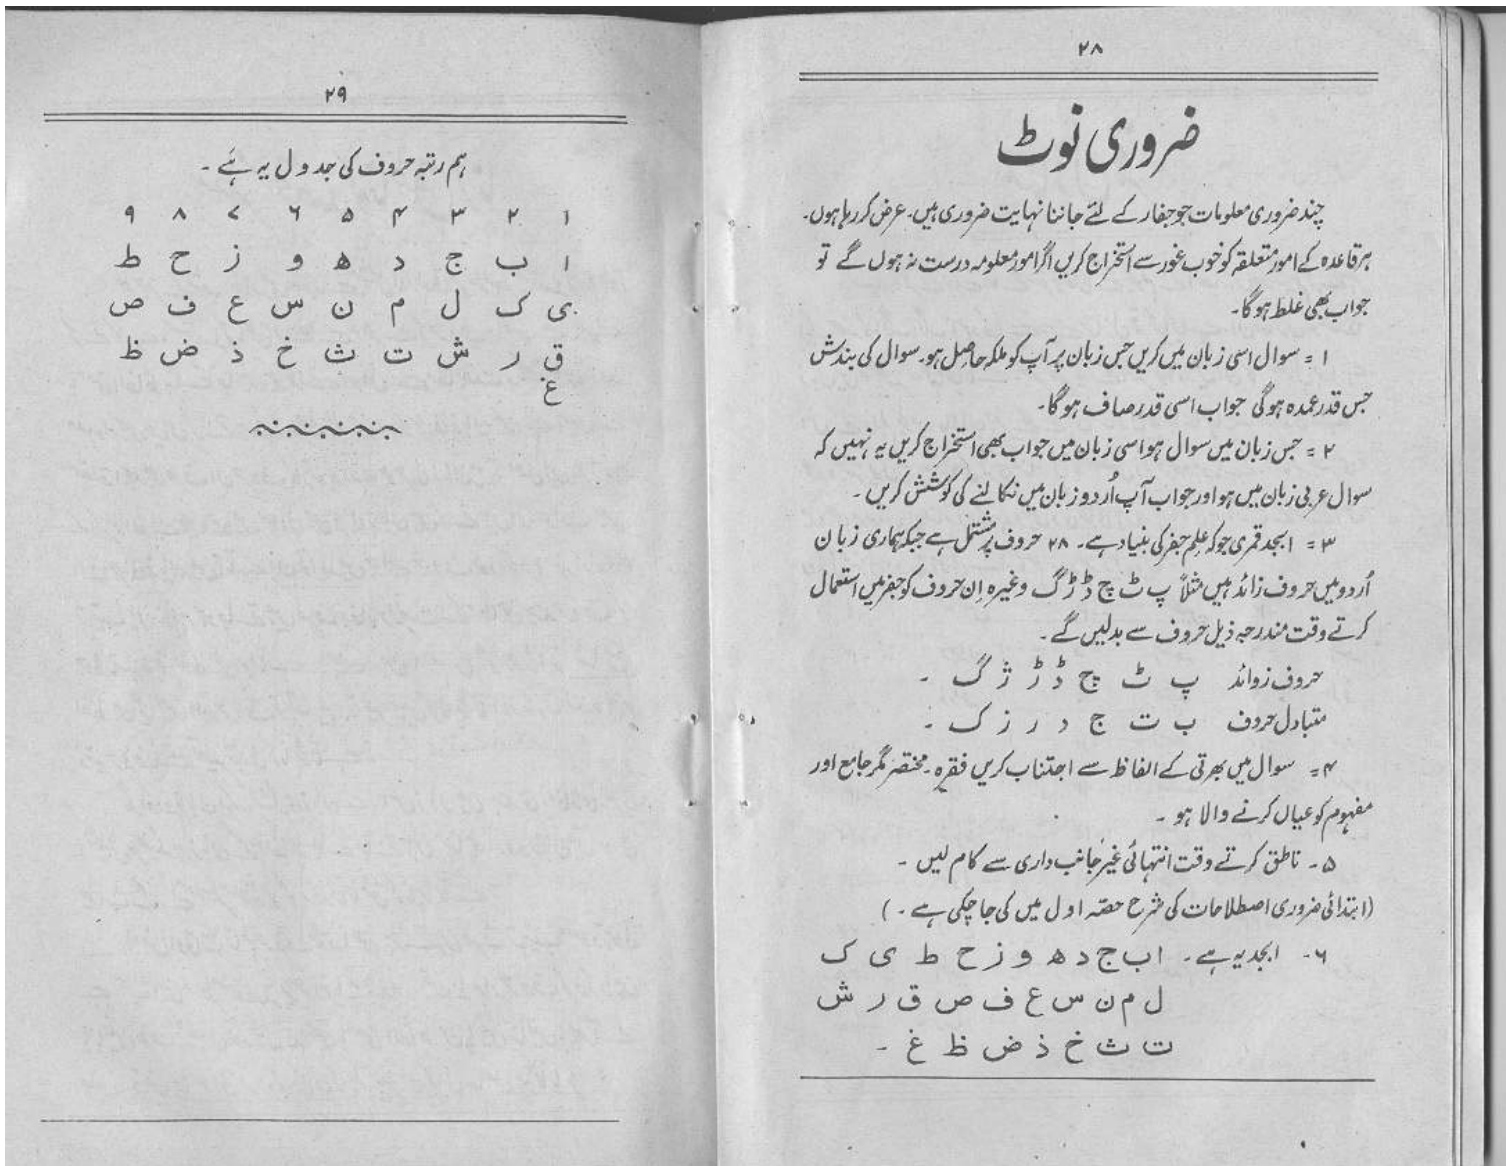 ۲۸
ضروری نوٹ
چند ضروری معلومات جو جفار کے لئے جاننا نہایت ضروری ہیں۔ عرض کر رہا ہوں۔
ہر قاعدہ کے امور متعلقہ کو خوب غور سے استخراج کریں اگر امور معلومہ درست نہ ہوں گے تو
جواب بھی غلط ہو گا۔
۱ = سوال اسی زبان میں کریں جس زبان پر آپ کو ملکہ حاصل ہو۔ سوال کی بندش
جس قدر عمدہ ہو گی جواب اسی قدر صاف ہو گا۔
۲ = جس زبان میں سوال ہو اسی زبان میں جواب بھی استخراج کریں یہ نہیں کہ
سوال عربی زبان میں ہو اور جواب آپ اُردو زبان میں نکالنے کی کوشش کریں۔
۳ = ابجد قمری جو کہ علم جفر کی بنیاد ہے۔ ۲۸ حروف پر مشتمل ہے جبکہ ہماری زبان
اُردو میں حروف زائد ہیں مثلاً پ ٹ چ ڈ ڑ گ وغیرہ اِن حروف کو جفر میں استعمال
کرتے وقت مندرجہ ذیل حروف سے بدلیں گے۔
حروف زوائد پ ٹ چ ڈ ڑ ژ گ ۔
متبادل حروف ب ت ج د ر ز ک ۔
۴ = سوال میں بھرتی کے الفاظ سے اجتناب کریں فقرہ۔ مختصر مگر جامع اور
مفہوم کو عیاں کرنے والا ہو ۔
۵ ۔ ناطق کرتے وقت انتہائی غیر جانب داری سے کام لیں ۔
(ابتدائی ضروری اصطلاحات کی شرح حصّہ اول میں کی جا چکی ہے ۔)
۶ ۔ ابجد یہ ہے ۔ ا ب ج د ھ و ز ح ط ی ک
ل م ن س ع ف ص ق ر ش
ت ث خ ذ ض ظ غ ۔
۲۹
ہم رتبہ حروف کی جدول یہ ہَے ۔
۱ ۲ ۳ ۴ ۵ ۶ ۷ ۸ ۹
ا ب ج د ھ و ز ح ط
ی ک ل م ن س ع ف ص
ق ر ش ت ث خ ذ ض ظ
غ